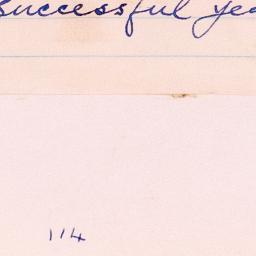 successful
114